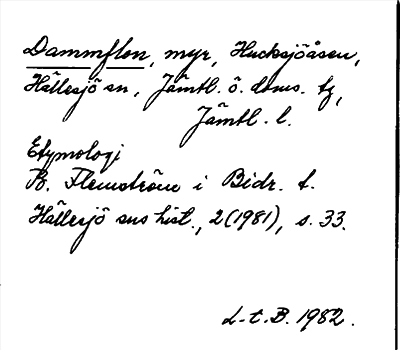 Dammflon, myr, Hucksjöåsen,
Hällesjö sn, Jämtl. ö. doms. tg,
Jämtl. l.
Etymologi
B. Flemström i Bidr. t.
Hällesjö sns hist., 2 (1981), s. 33.
L-t. B. 1982.